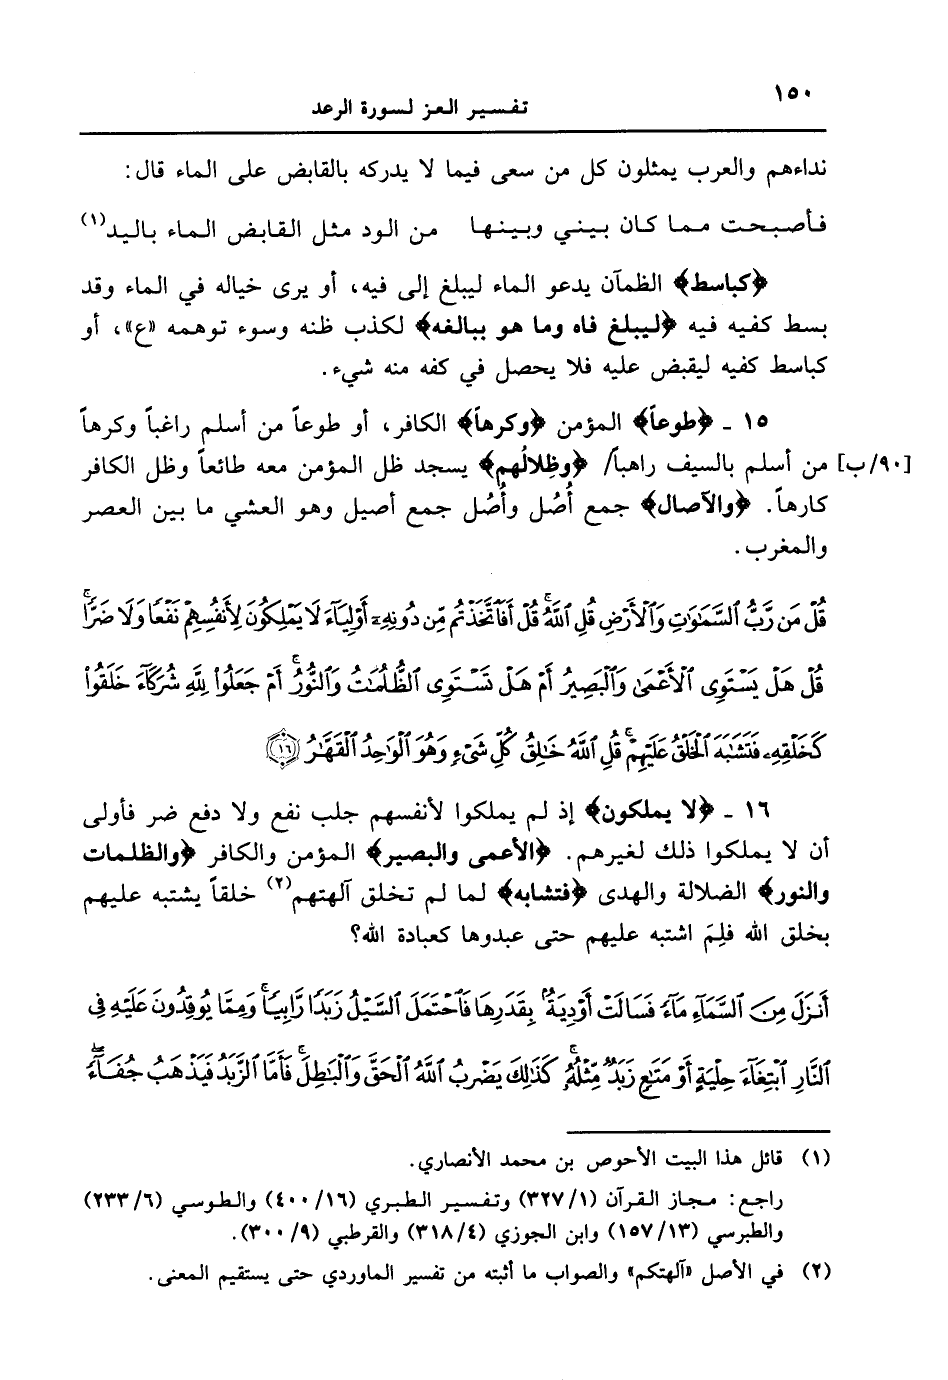 ١٥٠
تفسير العز لسورة الرعد
نداءهم والعرب يمثلون كل من سعى فيما لا يدركه بالقابض على الماء قال:
فأصبحت مما كان بيني وبينها من الود مثل القابض الماء باليد(١)
﴿كباسط﴾ الظمآن يدعو الماء ليبلغ إلى فيه، أو يرى خياله في الماء وقد
بسط كفيه فيه ﴿ليبلغ فاه وما هو ببالغه﴾ لكذب ظنه وسوء توهمه «ع»، أو
كباسط كفيه ليقبض عليه فلا يحصل في كفه منه شيء.
١٥ ـ ﴿طوعاً﴾ المؤمن ﴿وكرهاً﴾ الكافر، أو طوعاً من أسلم راغباً وكرهاً
[٩٠/ب] من أسلم بالسيف راهباً/ ﴿وظِلالُهم﴾ يسجد ظل المؤمن معه طائعاً وظل الكافر
كارهاً. ﴿والآصال﴾ جمع أُصُل وأُصُل جمع أصيل وهو العشي ما بين العصر
والمغرب.
قُلْ مَن رَّبُّ ٱلسَّمَٰوَٰتِ وَٱلْأَرْضِ قُلِ ٱللَّهُۚ قُلْ أَفَٱتَّخَذْتُم مِّن دُونِهِۦٓ أَوْلِيَآءَ لَا يَمْلِكُونَ لِأَنفُسِهِمْ نَفْعًا وَلَا ضَرًّاۚ
قُلْ هَلْ يَسْتَوِى ٱلْأَعْمَىٰ وَٱلْبَصِيرُ أَمْ هَلْ تَسْتَوِى ٱلظُّلُمَٰتُ وَٱلنُّورُۗ أَمْ جَعَلُوا۟ لِلَّهِ شُرَكَآءَ خَلَقُوا۟
كَخَلْقِهِۦ فَتَشَٰبَهَ ٱلْخَلْقُ عَلَيْهِمْۚ قُلِ ٱللَّهُ خَٰلِقُ كُلِّ شَىْءٍ وَهُوَ ٱلْوَٰحِدُ ٱلْقَهَّٰرُ ١٦
١٦ ـ ﴿لا يملكون﴾ إذ لم يملكوا لأنفسهم جلب نفع ولا دفع ضر فأولى
أن لا يملكوا ذلك لغيرهم. ﴿الأعمى والبصير﴾ المؤمن والكافر ﴿والظلمات
والنور﴾ الضلالة والهدى ﴿فتشابه﴾ لما لم تخلق آلهتهم(٢) خلقاً يشتبه عليهم
بخلق الله فلِمَ اشتبه عليهم حتى عبدوها كعبادة الله؟
أَنزَلَ مِنَ ٱلسَّمَآءِ مَآءً فَسَالَتْ أَوْدِيَةٌۢ بِقَدَرِهَا فَٱحْتَمَلَ ٱلسَّيْلُ زَبَدًا رَّابِيًاۚ وَمِمَّا يُوقِدُونَ عَلَيْهِ فِى
ٱلنَّارِ ٱبْتِغَآءَ حِلْيَةٍ أَوْ مَتَٰعٍ زَبَدٌ مِّثْلُهُۥۚ كَذَٰلِكَ يَضْرِبُ ٱللَّهُ ٱلْحَقَّ وَٱلْبَٰطِلَۚ فَأَمَّا ٱلزَّبَدُ فَيَذْهَبُ جُفَآءًۖ
(١) قائل هذا البيت الأحوص بن محمد الأنصاري.
راجع: مجاز القرآن (٣٢٧/١) وتفسير الطبري (٤٠٠/١٦) والطوسي (٢٣٣/٦)
والطبرسي (١٥٧/١٣) وابن الجوزي (٣١٨/٤) والقرطبي (٣٠٠/٩).
(٢) في الأصل «آلهتكم» والصواب ما أثبته من تفسير الماوردي حتى يستقيم المعنى.